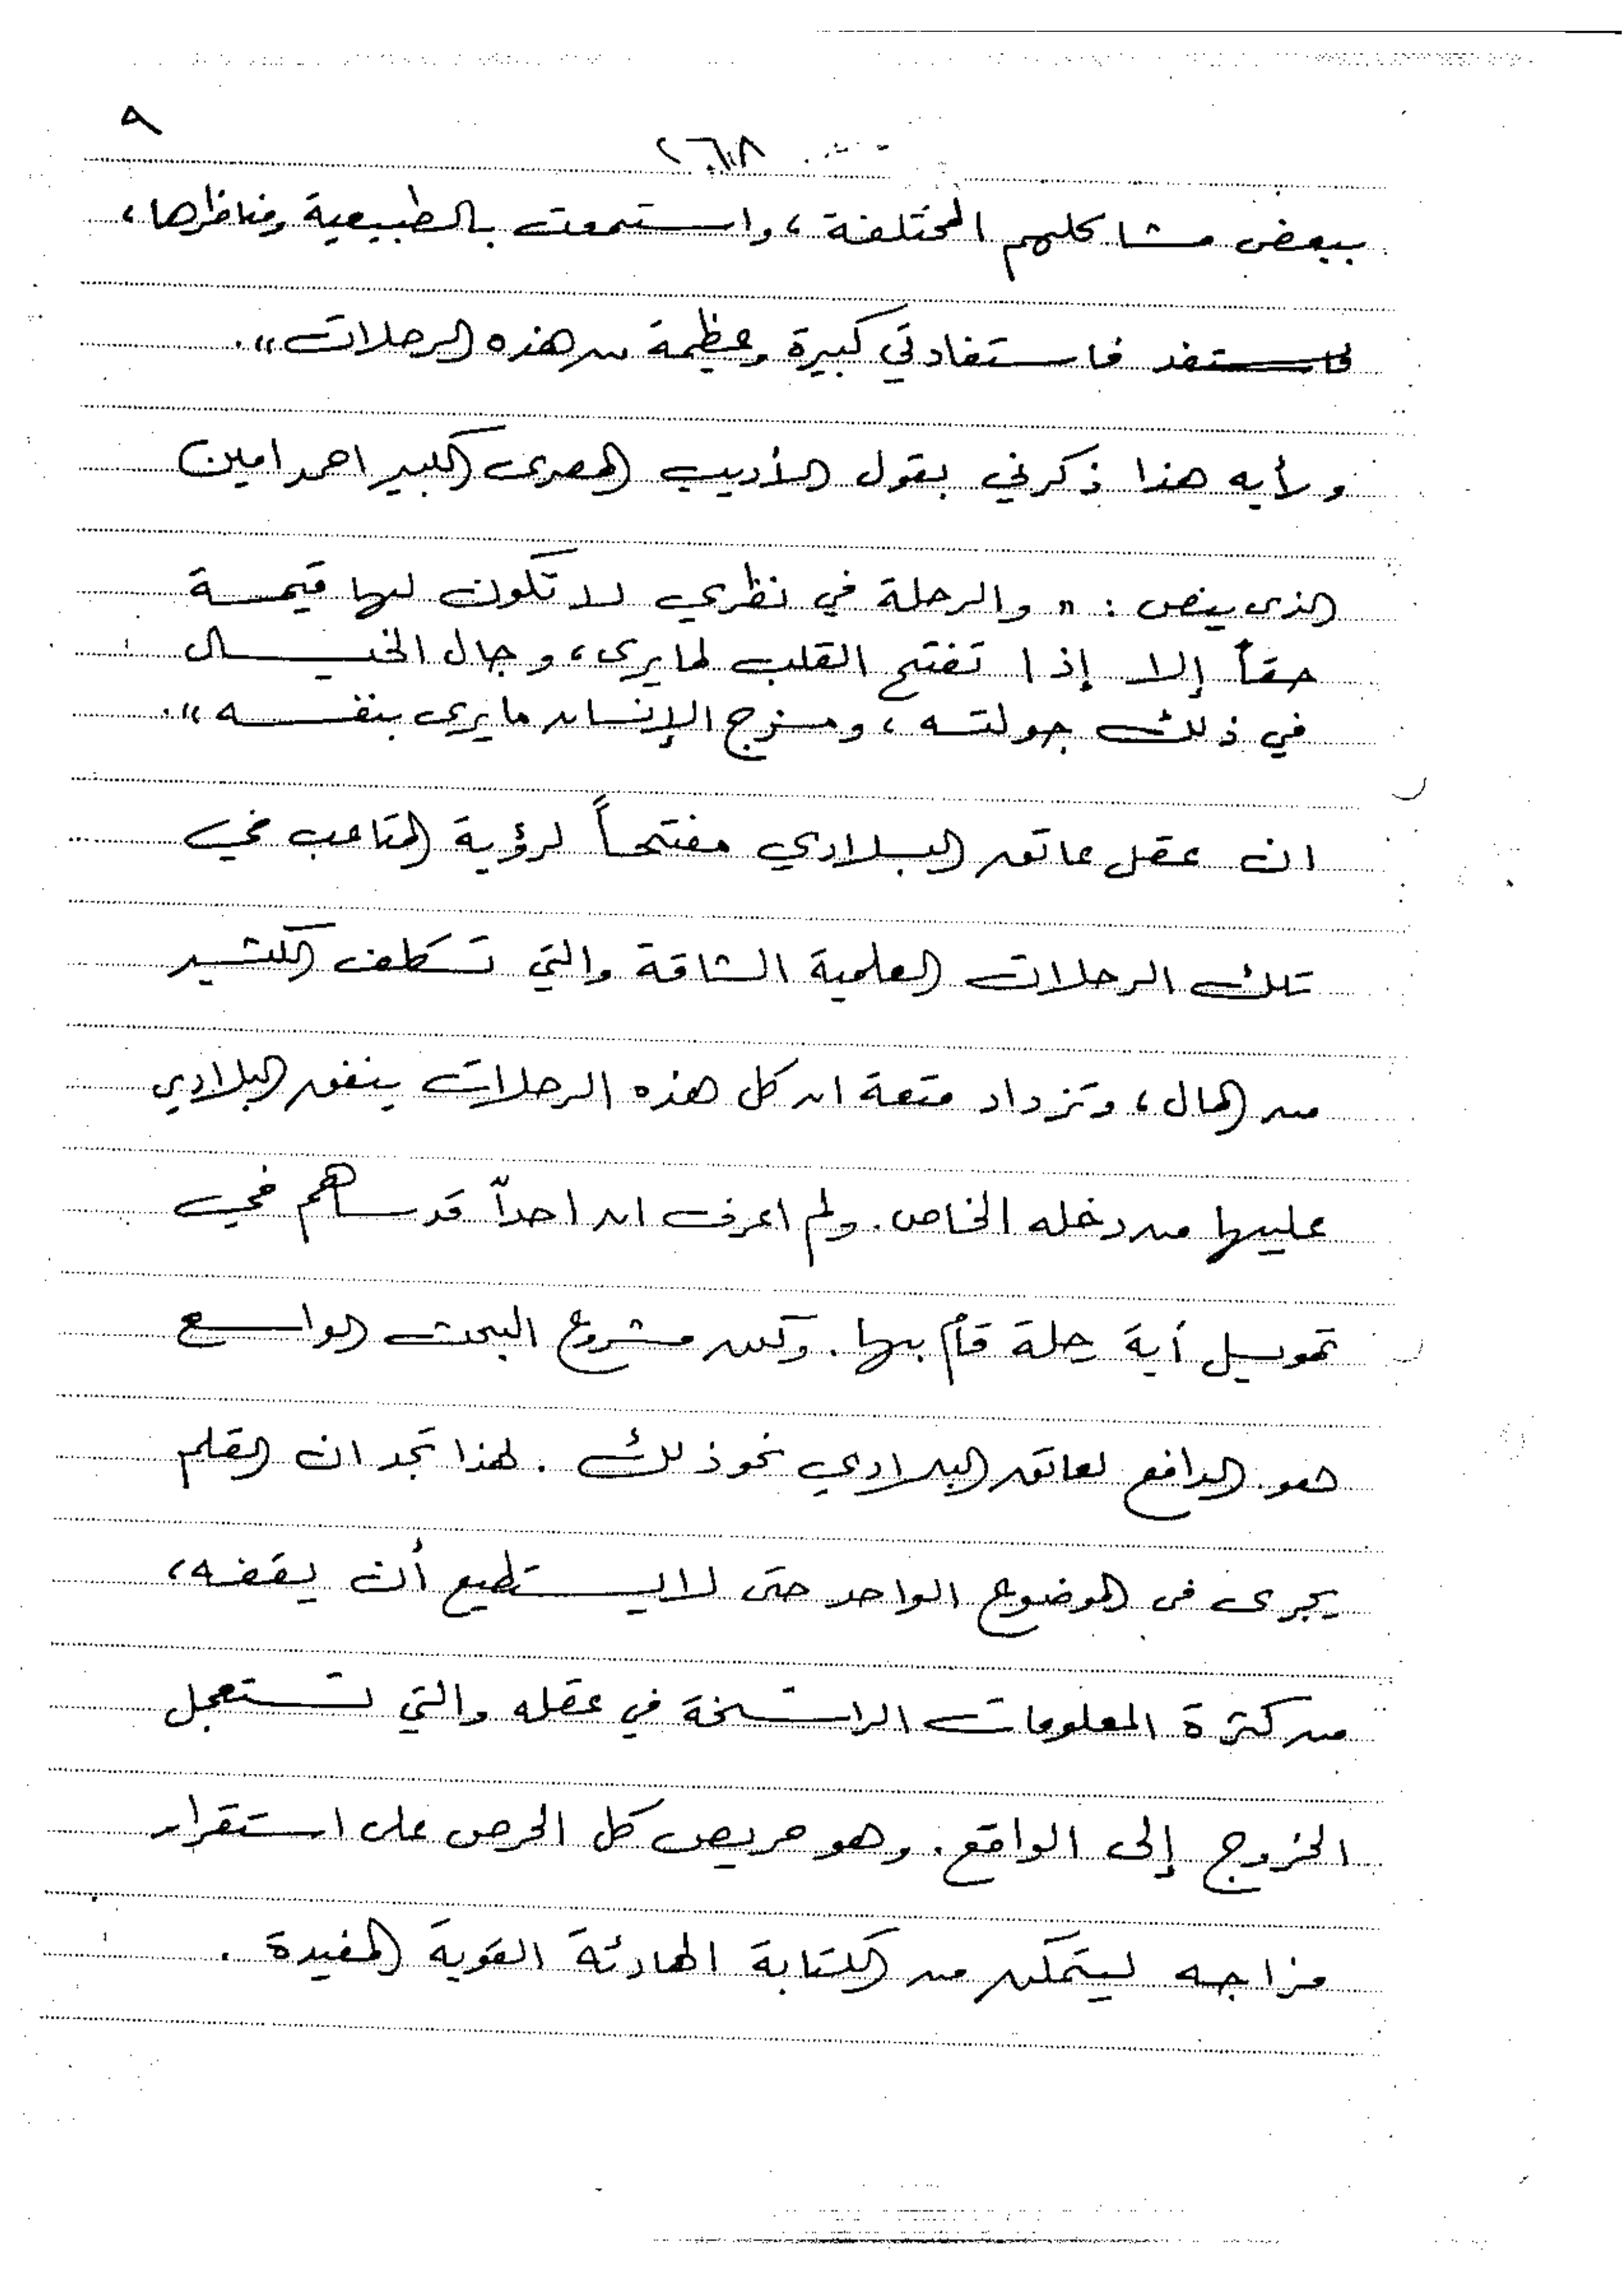 ٩
ببعض مشاكلهم المختلفة، واستمعت بالطبيعية ومناظرها،
فاستفد فاستفادتي كبيرة وعظيمة من هذه الرحلات».
ورأيه هذا ذكرني بقول الأديب المصري الكبير احمد امين
الذي ينص: «والرحلة في نظري لا تكون لها قيمة
حقاً إلا إذا تفتح القلب لما يرى، وجال الخيال
في ذلك جولته، ومزج الإنسان ما يرى بنفسه».
ان عقل عاتق البلادي مفتحاً لرؤية المتاعب في
تلك الرحلات العلمية الشاقة والتي تكلف الكثير
من المال، وتزداد متعة ان كل هذه الرحلات ينفق البلادي
عليها من دخله الخاص. ولم اعرف ان احداً قد ساهم في
تمويل أية رحلة قام بها. ولكن مشروع البحث الواسع
هو الدافع لعاتق البلادي نحو ذلك. لهذا تجد ان القلم
يجرى في الموضوع الواحد حتى لا يستطيع أن يقفه،
من كثرة المعلومات الراسخة في عقله والتي تستعجل
الخروج إلى الواقع. وهو حريص كل الحرص على استقرار
مزاجه ليتمكن من الكتابة الهادئة القوية المفيدة.